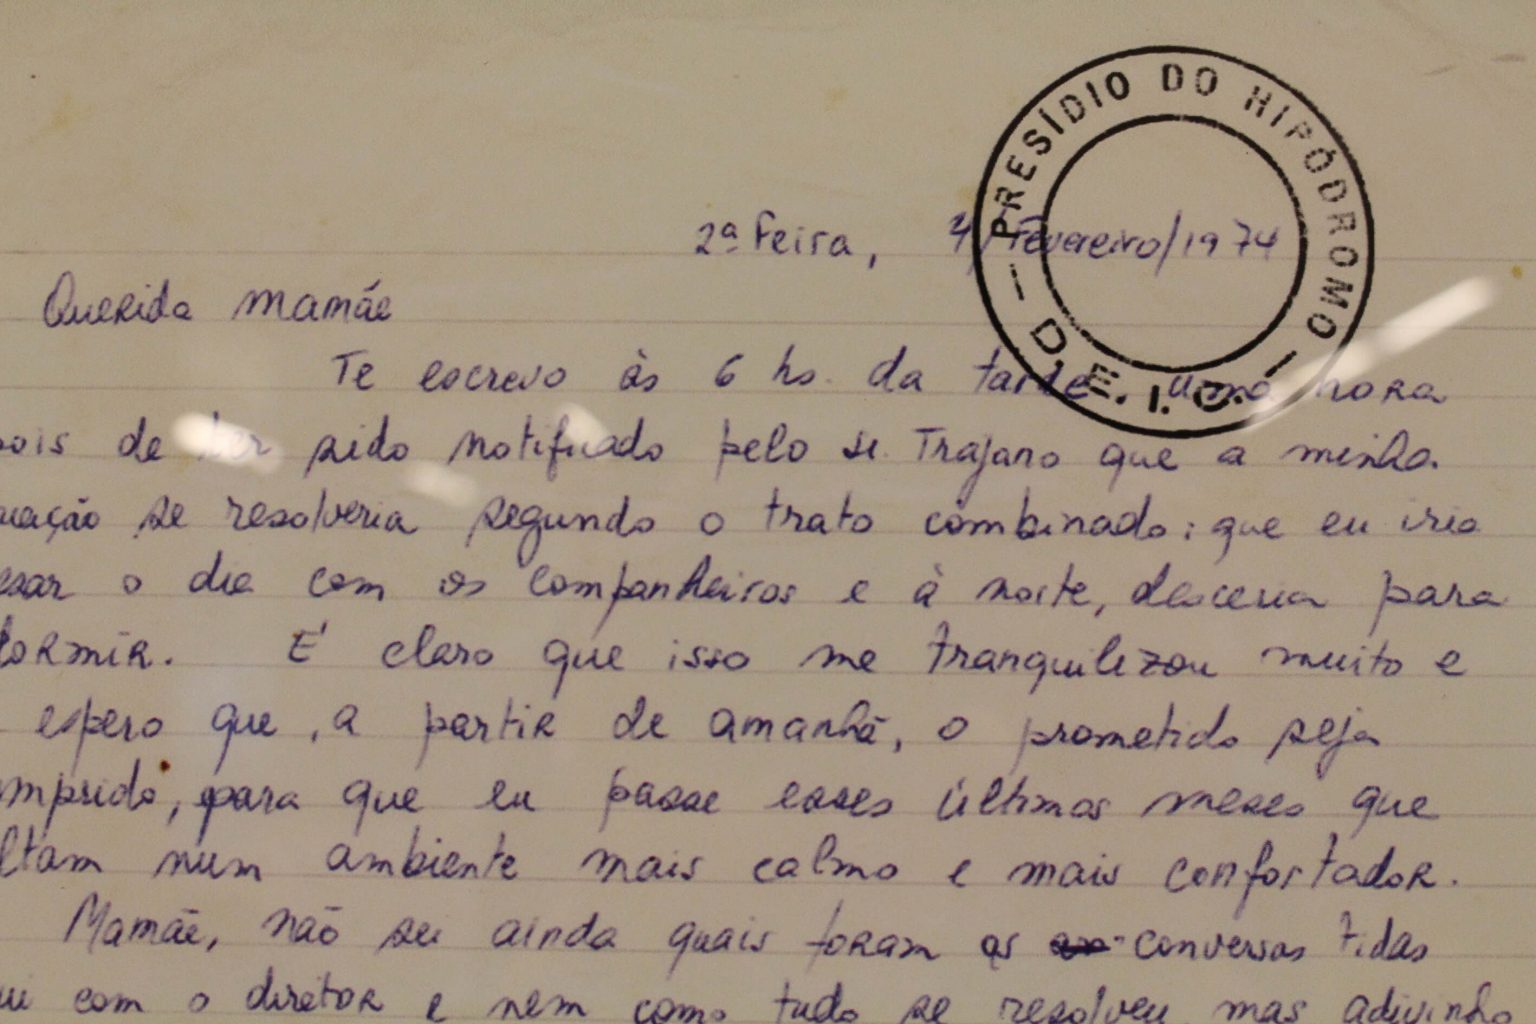 PRESÍDIO DO HIPÓDROMO
D.E.I.C.
2ª Feira, 4/Fevereiro/1974
Querida Mamãe
Te escrevo às 6 hs. da tarde, uma hora
pois de ter sido notificado pelo sr. Trajano que a minha
uação se resolveria segundo o trato combinado: que eu iria
ssar o dia com os companheiros e à noite, desceria para
dormir. É claro que isso me tranquilizou muito e
espero que, a partir de amanhã, o prometido seja
mprido, para que eu passe esses últimos meses que
ltam num ambiente mais calmo e mais confortador.
Mamãe, não sei ainda quais foram as conversas tidas
ui com o diretor e nem como tudo se resolveu mas adivinho